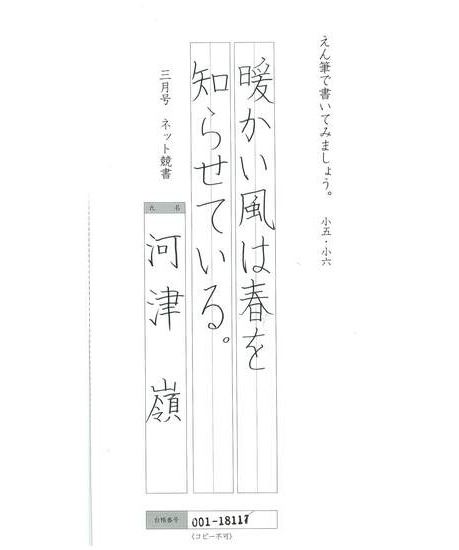 えん筆で書いてみましょう。 小五・小六
暖かい風は春を
知らせている。
三月号 ネット競書
氏 名
河津 嶺
台帳番号
001-18117
(コピー不可)